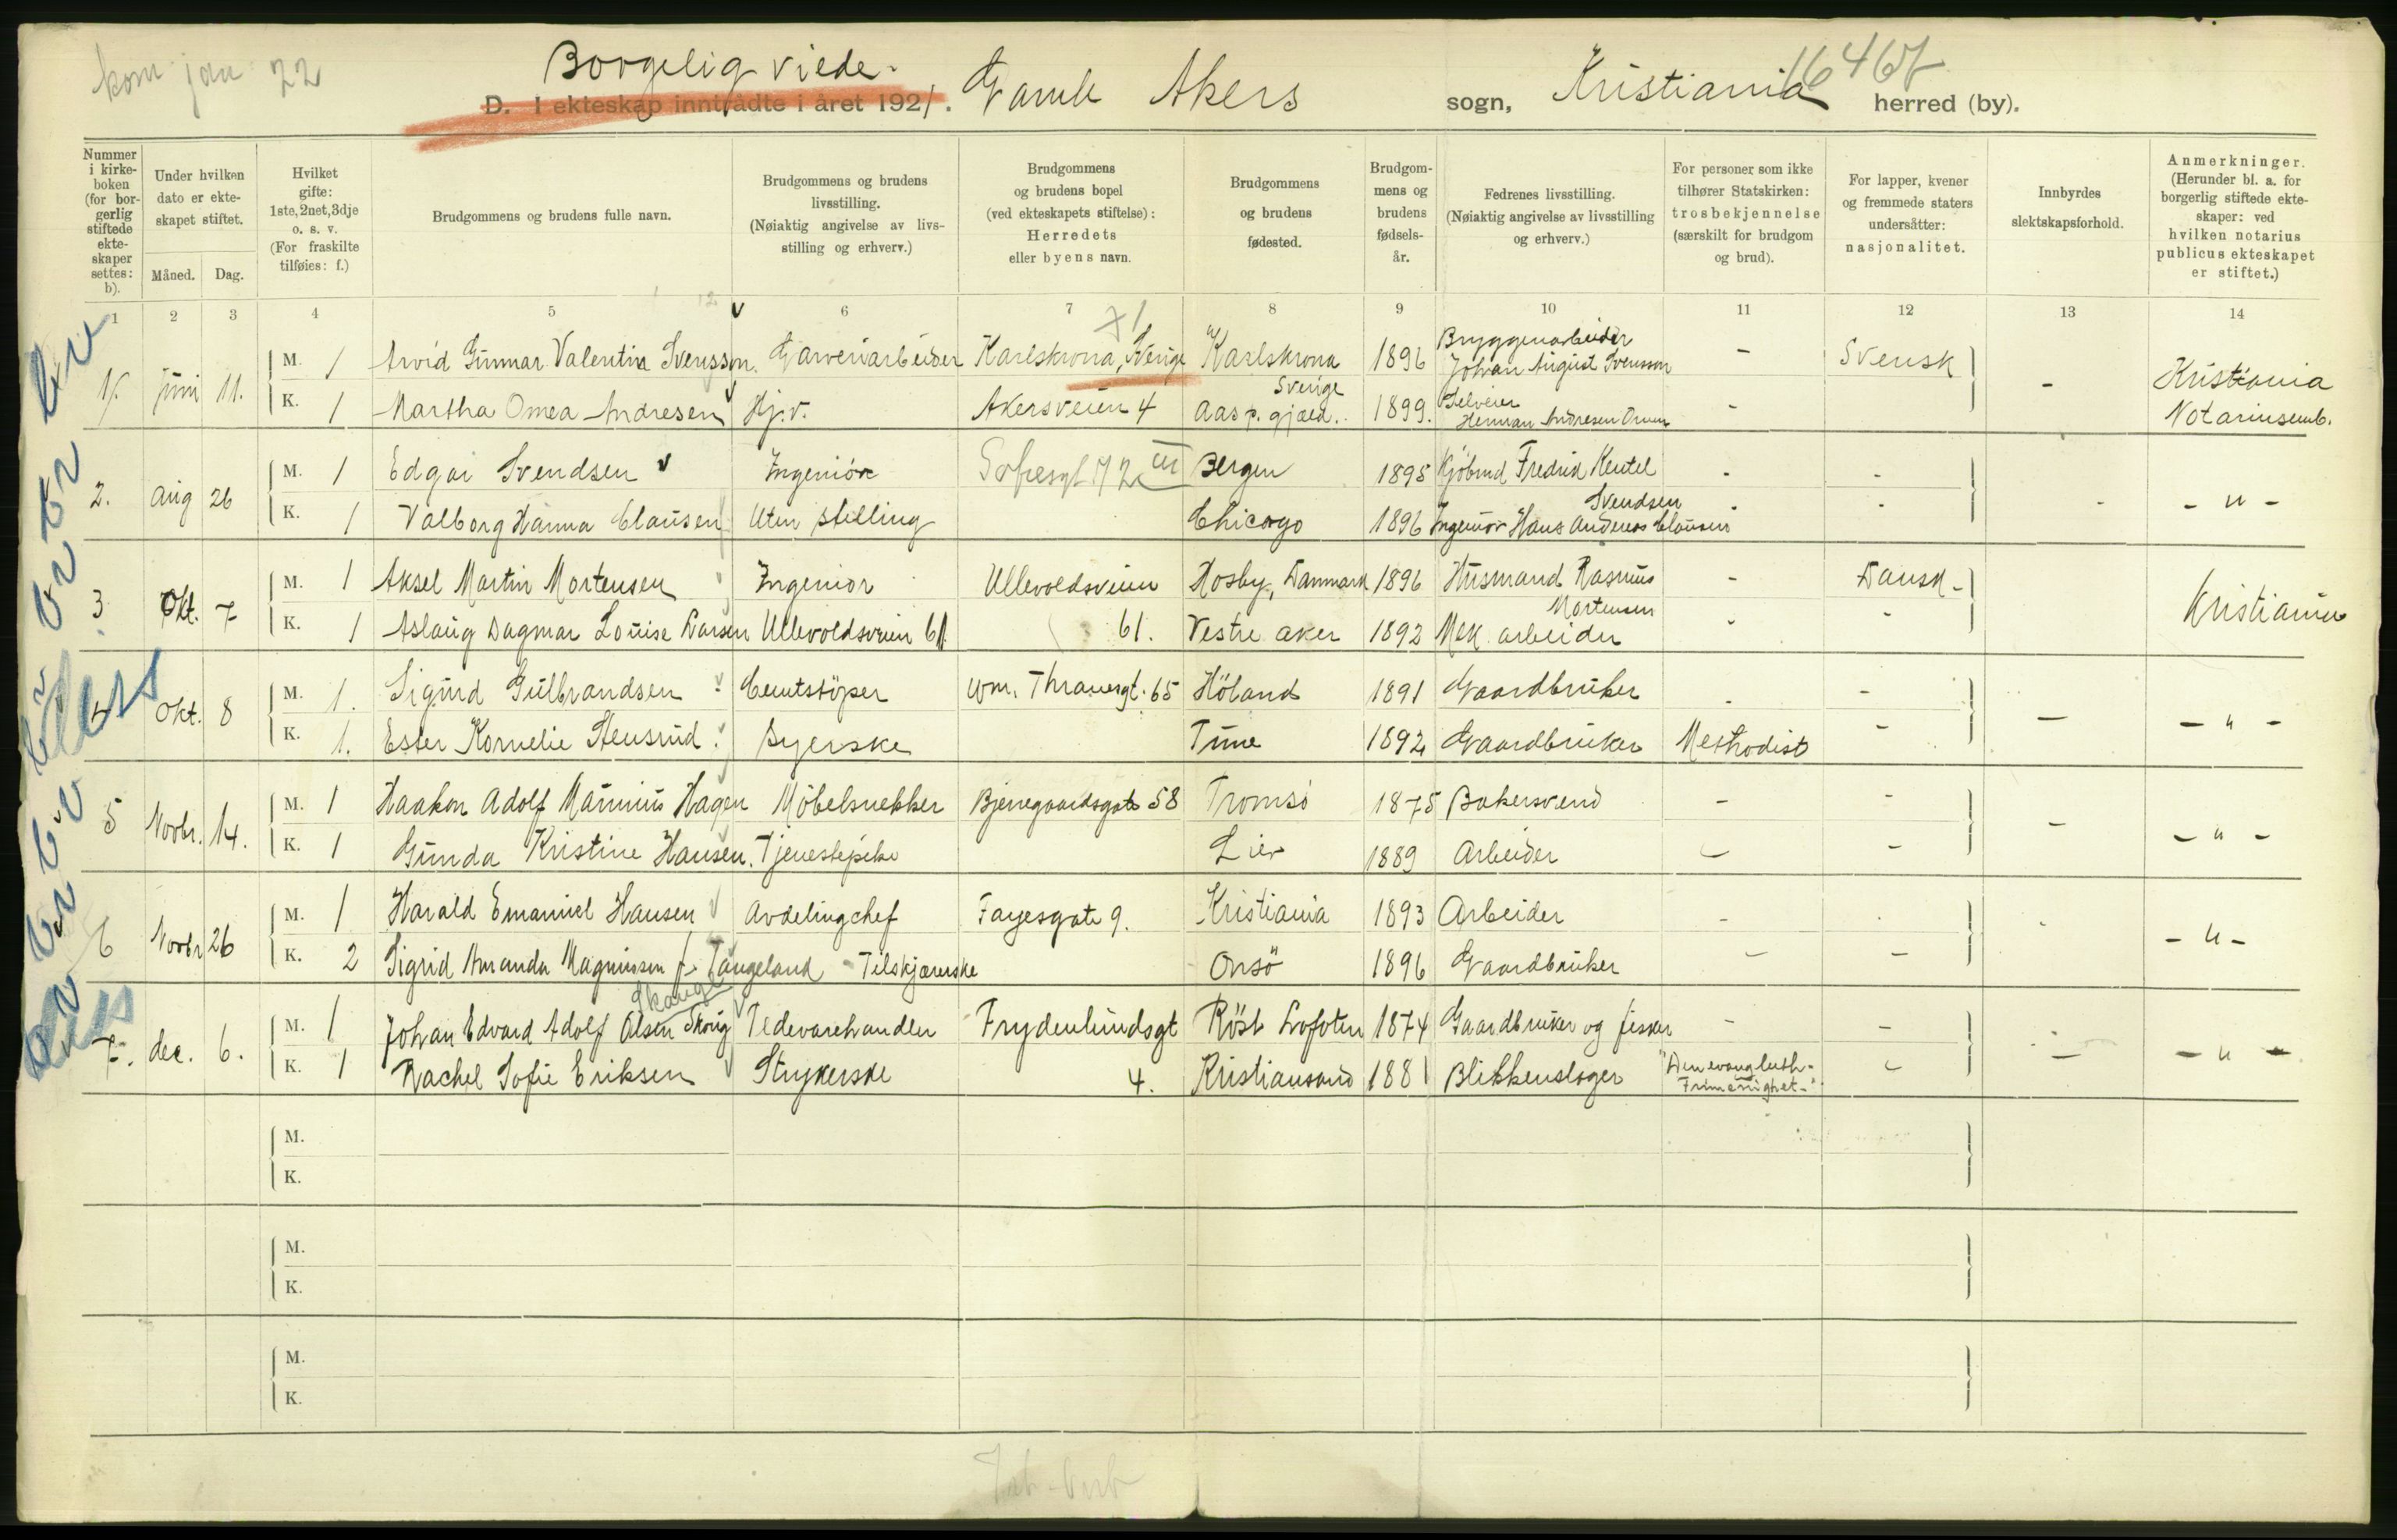 kom jan 22
Borgelig viede.
D. I ekteskap inntrådte i året 1921. Gamle Akers sogn, Kristiania herred (by).
Nummer i kirkeboken (for borgerlig stiftede ekteskaper settes: b).
Under hvilken dato er ekteskapet stiftet.
Måned. Dag.
Hvilket gifte: 1ste, 2net, 3dje o. s. v. (For fraskilte tilføies: f.)
Brudgommens og brudens fulle navn.
Brudgommens og brudens livsstilling. (Nøiaktig angivelse av livsstilling og erhverv.)
Brudgommens og brudens bopel (ved ekteskapets stiftelse): Herredets eller byens navn.
Brudgommens og brudens fødested.
Brudgommens og brudens fødselsår.
Fedrenes livsstilling. (Nøiaktig angivelse av livsstilling og erhverv.)
For personer som ikke tilhører Statskirken: trosbekjennelse (særskilt for brudgom og brud).
For lapper, kvener og fremmede staters undersåtter: nasjonalitet.
Innbyrdes slektskapsforhold.
Anmerkninger. (Herunder bl. a. for borgerlig stiftede ekteskaper: ved hvilken notarius publicus ekteskapet er stiftet.)
1 2 3 4 5 6 7 8 9 10 11 12 13 14
1. juni 11. M. 1 Arvid Gunnar Valentin Svensson. Garveriarbeider Karlskrona, Sverige Karlskrona Sverige 1896 Bryggeriarbeider Johan August Svensson - Svensk - Kristiania Notariusemb.
K. 1 Martha Omea Andresen Hj.v. Akersveien 4 Aas p. gjæld. 1899. Selveier Herman Andresen -
2. Aug 26 M. 1 Edgar Svendsen Ingeniör Sofiesgt 72 III Bergen 1895 Kjöbmd Fredrik Svendsen - - - - " -
K. 1 Valborg Hanna Clausen Uten stilling Chicago 1896 Ingeniör Hans Andreas Clausen - -
3. Okt. 7 M. 1 Aksel Martin Mortensen Ingeniör Ullevoldsveien Hosby, Danmark 1896 Husmand Rasmus Mortensen - Dansk - Kristiania
K. 1 Aslaug Dagmar Louise Larsen Ullevoldsveien 61 61. Vestre aker 1892 Mek. arbeider - -
4 Okt. 8 M. 1. Sigurd Gulbrandsen Cemtstöper Wm. Thranesgt. 65 Höland 1891 Gaardbruker - - - - " -
K. 1. Ester Kornelie Stensrud. Syerske Tune 1892 Gaardbruker Methodist -
5 Novbr. 14. M. 1 Haakon Adolf Marinius Hagen Möbelsnekker Bjerregaardsgate 58 Tromsö 1875 Bakersvend - - - - " -
K. 1 Gunda Kristine Hansen. Tjenestepike Lier 1889 Arbeider - -
6 Novbr 26 M. 1 Harald Emanuel Hansen Avdelingchef Fayesgate 9. Kristiania 1893 Arbeider - - - - " -
K. 2 Sigrid Amanda Magnussen f. Tangeland Tilskjærerske Onsö 1896 Gaardbruker - -
Skaug
7. dec. 6. M. 1 Johan Edvard Adolf Olsen Skoug Tedevarehandler Frydenlundsgt Röst Lofoten 1874 Gaardbruker og fisker - - - - " -
K. 1 Rachel Sofie Eriksen Strykerske 4. Kristiansand 1881 Blikkenslager "Den evang luth. Frimenighet." -
M.
K.
M.
K.
M.
K.